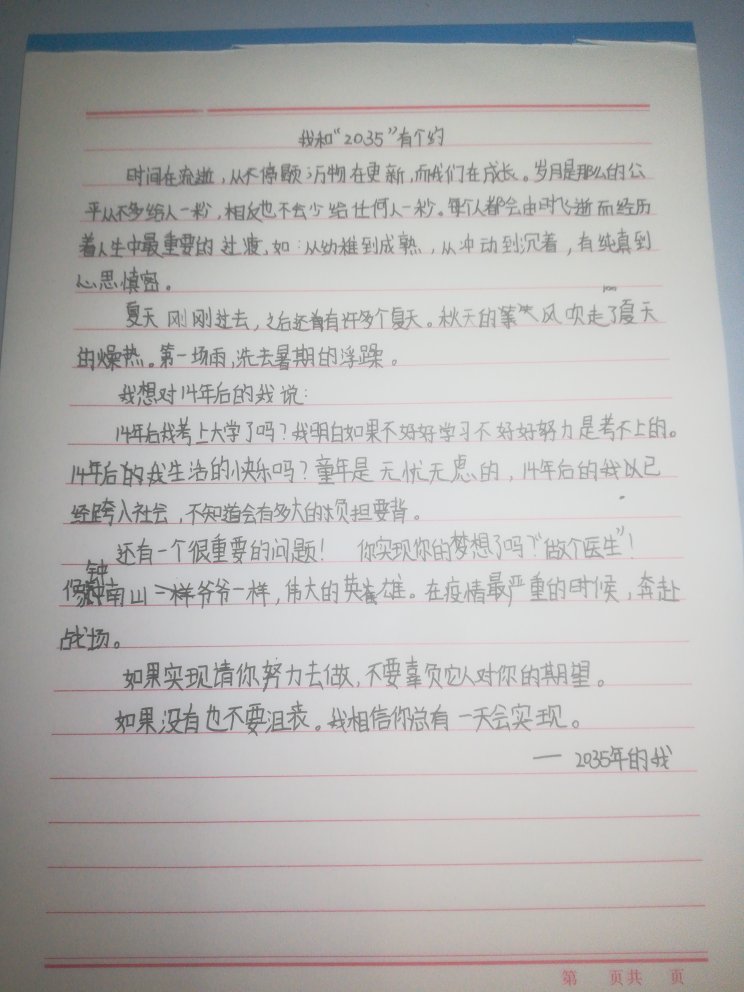 我和“2035”有个约
时间在流逝，从不停顿；万物在更新，而我们在成长。岁月是那么的公
平从不多给人一秒，相反也不会少给任何人一秒。每个人都会由时飞逝而经历
着人生中最重要的过渡，如：从幼稚到成熟，从冲动到沉着，有纯真到
心思慎密。
夏天刚刚过去，之后还有许多个夏天。秋天的第一 风吹走了夏天
的燥热。第一场雨，洗去暑期的浮躁。
我想对14年后的我说：
14年后我考上大学了吗？我明白如果不好好学习不好好努力是考不上的。
14年后的我生活的快乐吗？童年是无忧无虑的，14年后的我以已
经跨入社会，不知道会有多大的负担要背。
还有一个很重要的问题！你实现你的梦想了吗？“做个医生”！
像钟南山爷爷一样，伟大的英雄。在疫情最严重的时候，奔赴
战场。
如果实现请你努力去做，不要辜负它人对你的期望。
如果没有也不要沮丧。我相信你总有一天会实现。
— 2035年的我
第 页共 页